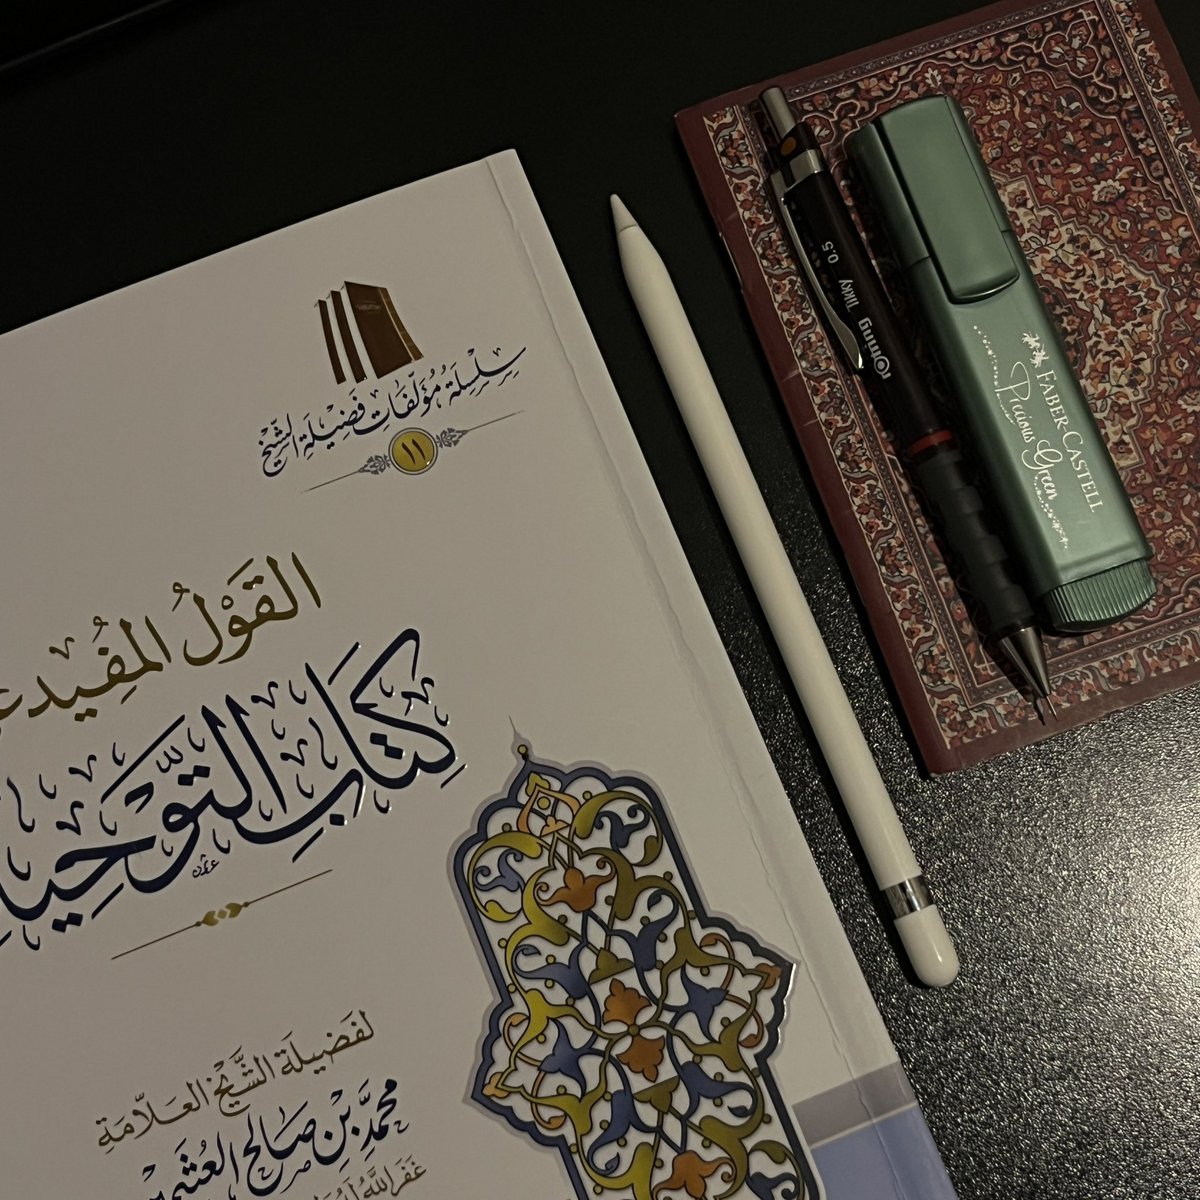 سِلْسِلَة مُؤَلَّفَات فَضِيلَة الشَّيْخ
١١
القَوْلُ المُفِيد
كِتَابِ التَّوْحِيد
لفَضِيلَة الشَّيْخ العَلَّامَة
مُحَمَّد بْن صَالِح العُثَيمِين
غَفَرَ اللَّهُ
rotring Tikky 0.5
FABER-CASTELL
Precious Green